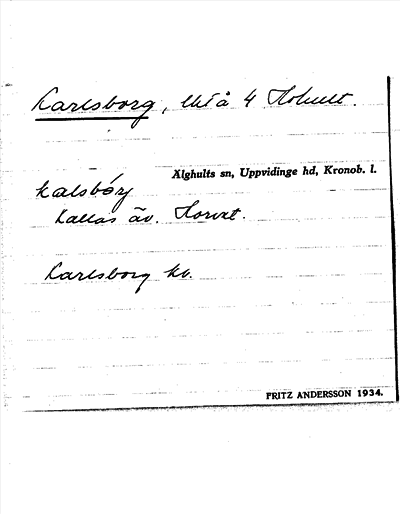 Karlsborg, lht å 4 Hohult.
Älghults sn, Uppvidinge hd, Kronob. l.
kalsbórj
kallas äv. Horvat.
Karlsborg kv.
FRITZ ANDERSSON 1934.